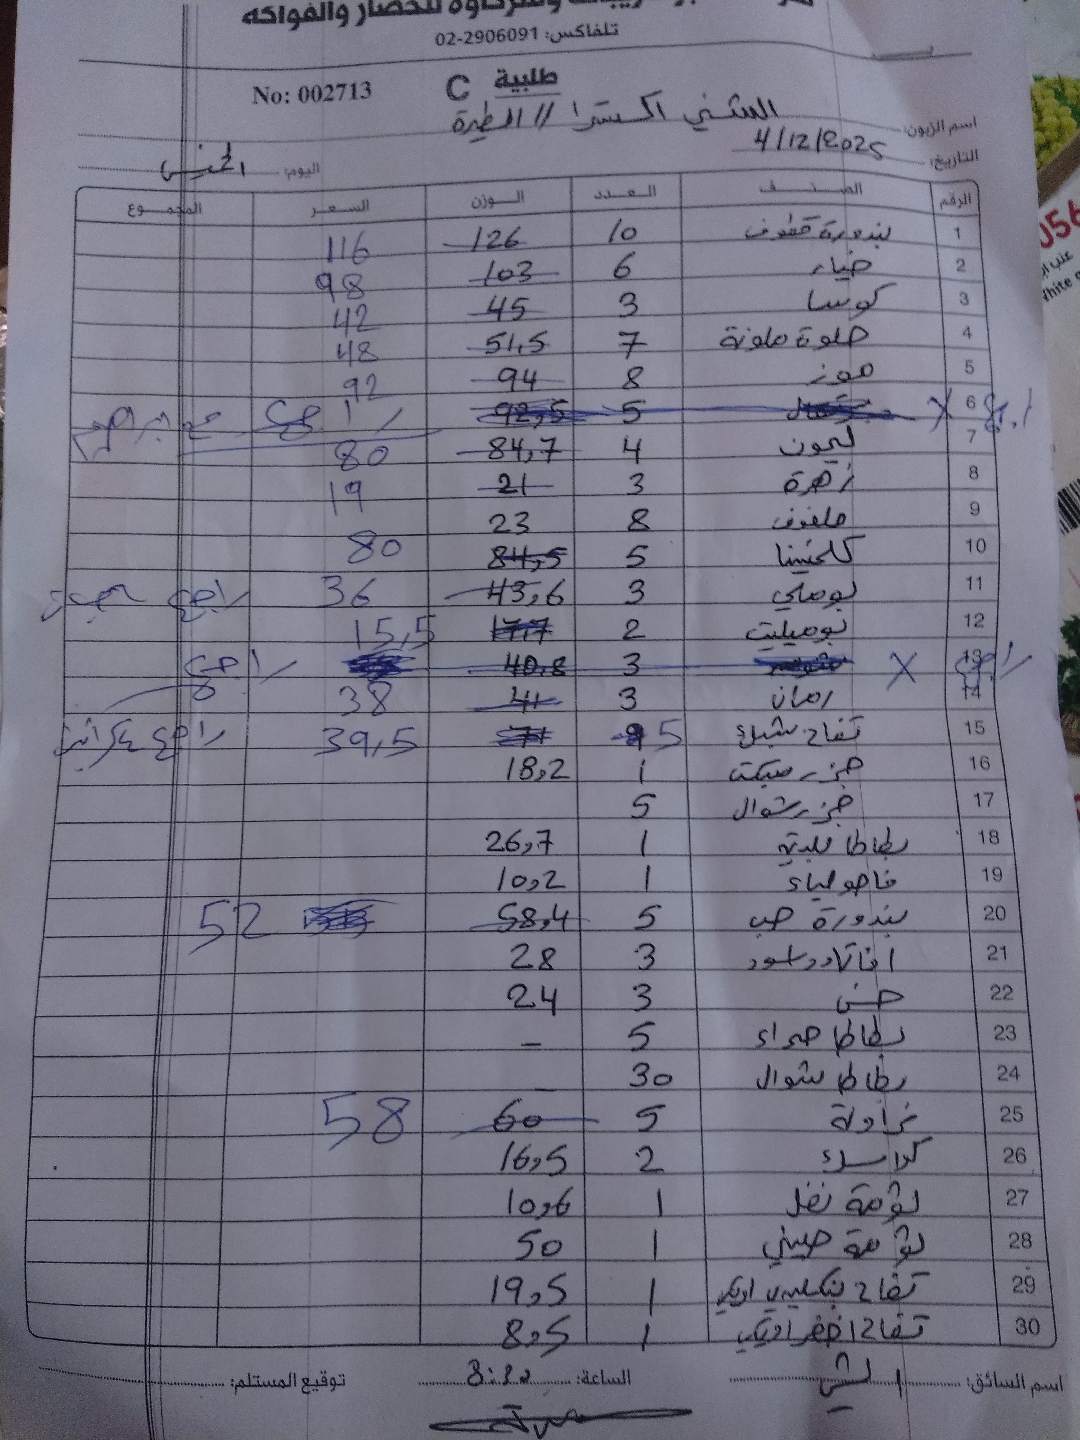 للخضار والفواكه
تلفاكس: 02-2906091
No: 002713 طلبية C
اسم الزبون: الشني اكسترا // الطيرة
التاريخ: 4/12/2025 اليوم: الخميس
الرقم الصنف العدد الوزن السعر المجموع
1 بندورة قطوف 10 126 116
2 خيار 6 103 98
3 كوسا 3 45 42
4 حلوة ملونة 7 51,5 48
5 موز 8 94 92
6 5 92,5 راجع
7 ليمون 4 84,7 80
8 زهرة 3 21 19
9 ملفوف 8 23
10 كلمنتينا 5 84,5 80
11 بوملي 3 43,6 36 راجع
12 بوميليت 2 17,7 15,5
13 3 40,8 راجع X راجع
14 رمان 3 41 38
15 تفاح 5 71 39,5 راجع
16 جزر 1 18,2
17 جزر شوال 5
18 بطاطا 1 26,7
19 فاصولياء 1 10,2
20 بندورة حب 5 58,4 52
21 3 28
22 خس 3 24
23 بطاطا حمراء 5 –
24 بطاطا شوال 30 –
25 فراولة 5 60 58
26 2 16,5
27 ثومة 1 10,6
28 ثومة صيني 1 50
29 تفاح 1 19,5
30 تفاح اخضر 1 8,5
اسم السائق: الساعة: 3:30 توقيع المستلم: